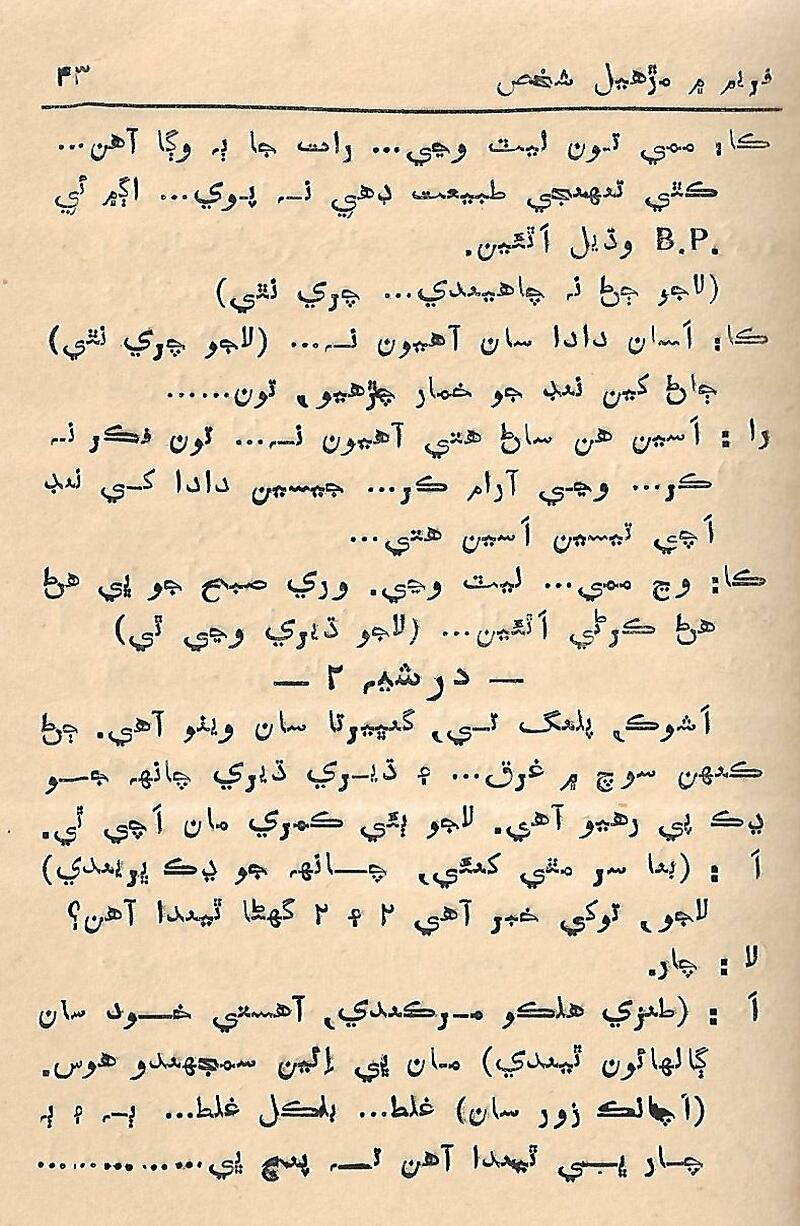 فريم ۾ مڙهيل شخص ۴۳
ڪا: ممي تون ليٽ وڃي... رات جا ٻه وڳا آهن...
ڪٿي تنهنجي طبيعت ڊهي نه پوي... اڳ۾ ئي
B.P. وڌيل اَٿئين.
(لاجو ڄڻ نه چاهيندي... چري نٿي)
ڪا: اَسان دادا سان آهيون نه... (لاجو چري نٿي)
ڄاڻ کين ننڊ جو خمار چڙهيو، تون......
را : اَسين هن ساڻ هتي آهيون نه... تون فڪر نه
ڪر... وڃي آرام ڪر... جيسين دادا کي ننڊ
اَچي تيسين اَسين هتي...
ڪا: وڃ ممي... ليٽ وڃي. وري صبح جو ڀي هڻ
هڻ ڪرڻي اَٿئين... (لاجو ڌيري وڃي ٿي)
— درشيه ۲ —
اَشوڪ، پلنگ تي، گنڀيرتا سان ويٺو آهي. ڄڻ
ڪنهن سوچ ۾ غرق... ۽ ڌيري ڌيري چانهه جو
ڍڪ پي رهيو آهي. لاجو ٻئي ڪمري مان اَچي ٿي.
اَ : (بنا سر مٿي کنئي، چانهه جو ڍڪ ڀريندي)
لاجو، توکي خبر آهي ۲ ۽ ۲ گهڻا ٿيندا آهن؟
لا : چار.
اَ : (طنزي هلڪو مرڪندي، آهستي خود سان
ڳالهائون ٿيندي) مان ڀي اِئين سمجهندو هوس.
(اَچانڪ زور سان) غلط... بلڪل غلط... ٻه ۽ ٻه
چار ڀي ٿيندا آهن ته پنج ڀي................